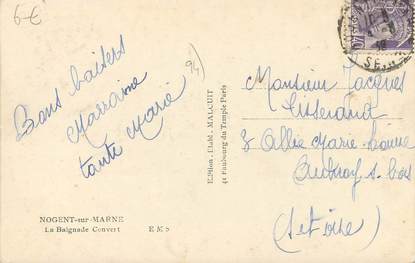 6€
94)
Bons baisers
Marraine
tante Marie
NOGENT-sur-MARNE
La Baignade Convert E M 5
E. Pilon, Etabl. MALCUIT
41 Faubourg du Temple Paris
Monsieur Jacques
Tisserand
8 Allée Marie-Louise
Aulnay s. bois
(S et Oise)